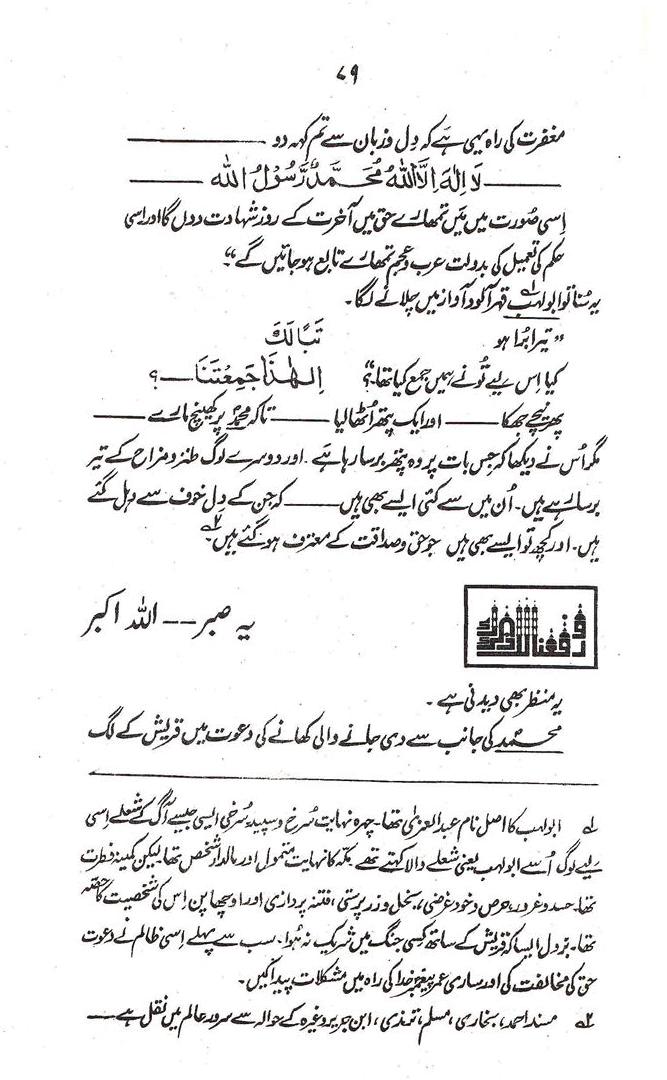 ۷۹
مغفرت کی راہ یہی ہے کہ دِل و زبان سے تم کہہ دو ————
———— لَا اِلٰهَ اِلَّا اللّٰهُ مُحَمَّدٌ رَّسُوْلُ اللّٰه ————
اِسی صُورت میں مَیں تمھارے حق میں آخرت کے روز شہادت دوں گا اور اسی
حکم کی تعمیل کی بدولت عرب و عجم تمھارے تابع ہو جائیں گے“۔
یہ سُنا تو ابولہب۱؎ قہر آلود آواز میں چلانے لگا۔
”تیرا بُرا ہو تَبًّا لَكَ
کیا اِس لیے تُو نے ہمیں جمع کیا تھا؟“ اَلِهٰذَا جَمَعْتَنَا——؟
پھر نیچے جھکا ——— اور ایک پتھر اُٹھا لیا ——— تاکہ محمدؐ پر کھینچ مارے ———
مگر اُس نے دیکھا کہ جس بات پر وہ پتھر برسا رہا ہے۔ اور دوسرے لوگ طنز و مزاح کے تیر
برسا رہے ہیں۔ اُن میں سے کئی ایسے بھی ہیں ——— کہ جن کے دِل خوف سے دہل گئے
ہیں۔ اور کچھ تو ایسے بھی ہیں جو حق و صداقت کے معترف ہو گئے ہیں۲؎۔
ورفعنا لك ذكرك
یہ صبر -- اللہ اکبر
یہ منظر بھی دیدنی ہے۔
محمدؐ کی جانب سے دی جانے والی کھانے کی دعوت میں قریش کے لگ
۱؎ ابولہب کا اصل نام عبدالعزیٰ تھا۔ چہرہ نہایت سُرخ و سپید، سُرخی ایسی جیسے آگ کے شعلے اِسی
لیے لوگ اُسے ابولہب یعنی شعلے والا کہتے تھے۔ مکہ کا نہایت متمول اور مالدار شخص تھا لیکن کمینہ فطرت
تھا۔ حسد و غرور، حرص و خود غرضی، بخل و زر پرستی، فتنہ پردازی اور اوچھا پن اِس کی شخصیت کا حصّہ
تھا۔ بزدل ایسا کہ قریش کے ساتھ کِسی جنگ میں شریک نہ ہُوا۔ سب سے پہلے اِسی ظالم نے دعوت
حق کی مخالفت کی اور ساری عمر پیغمبرِ خدا کی راہ میں مشکلات پیدا کیں۔
۲؎ مسند احمد، بخاری، مسلم، ترمذی، ابن جریر وغیرہ کے حوالہ سے سرور عالم میں نقل ہے ———